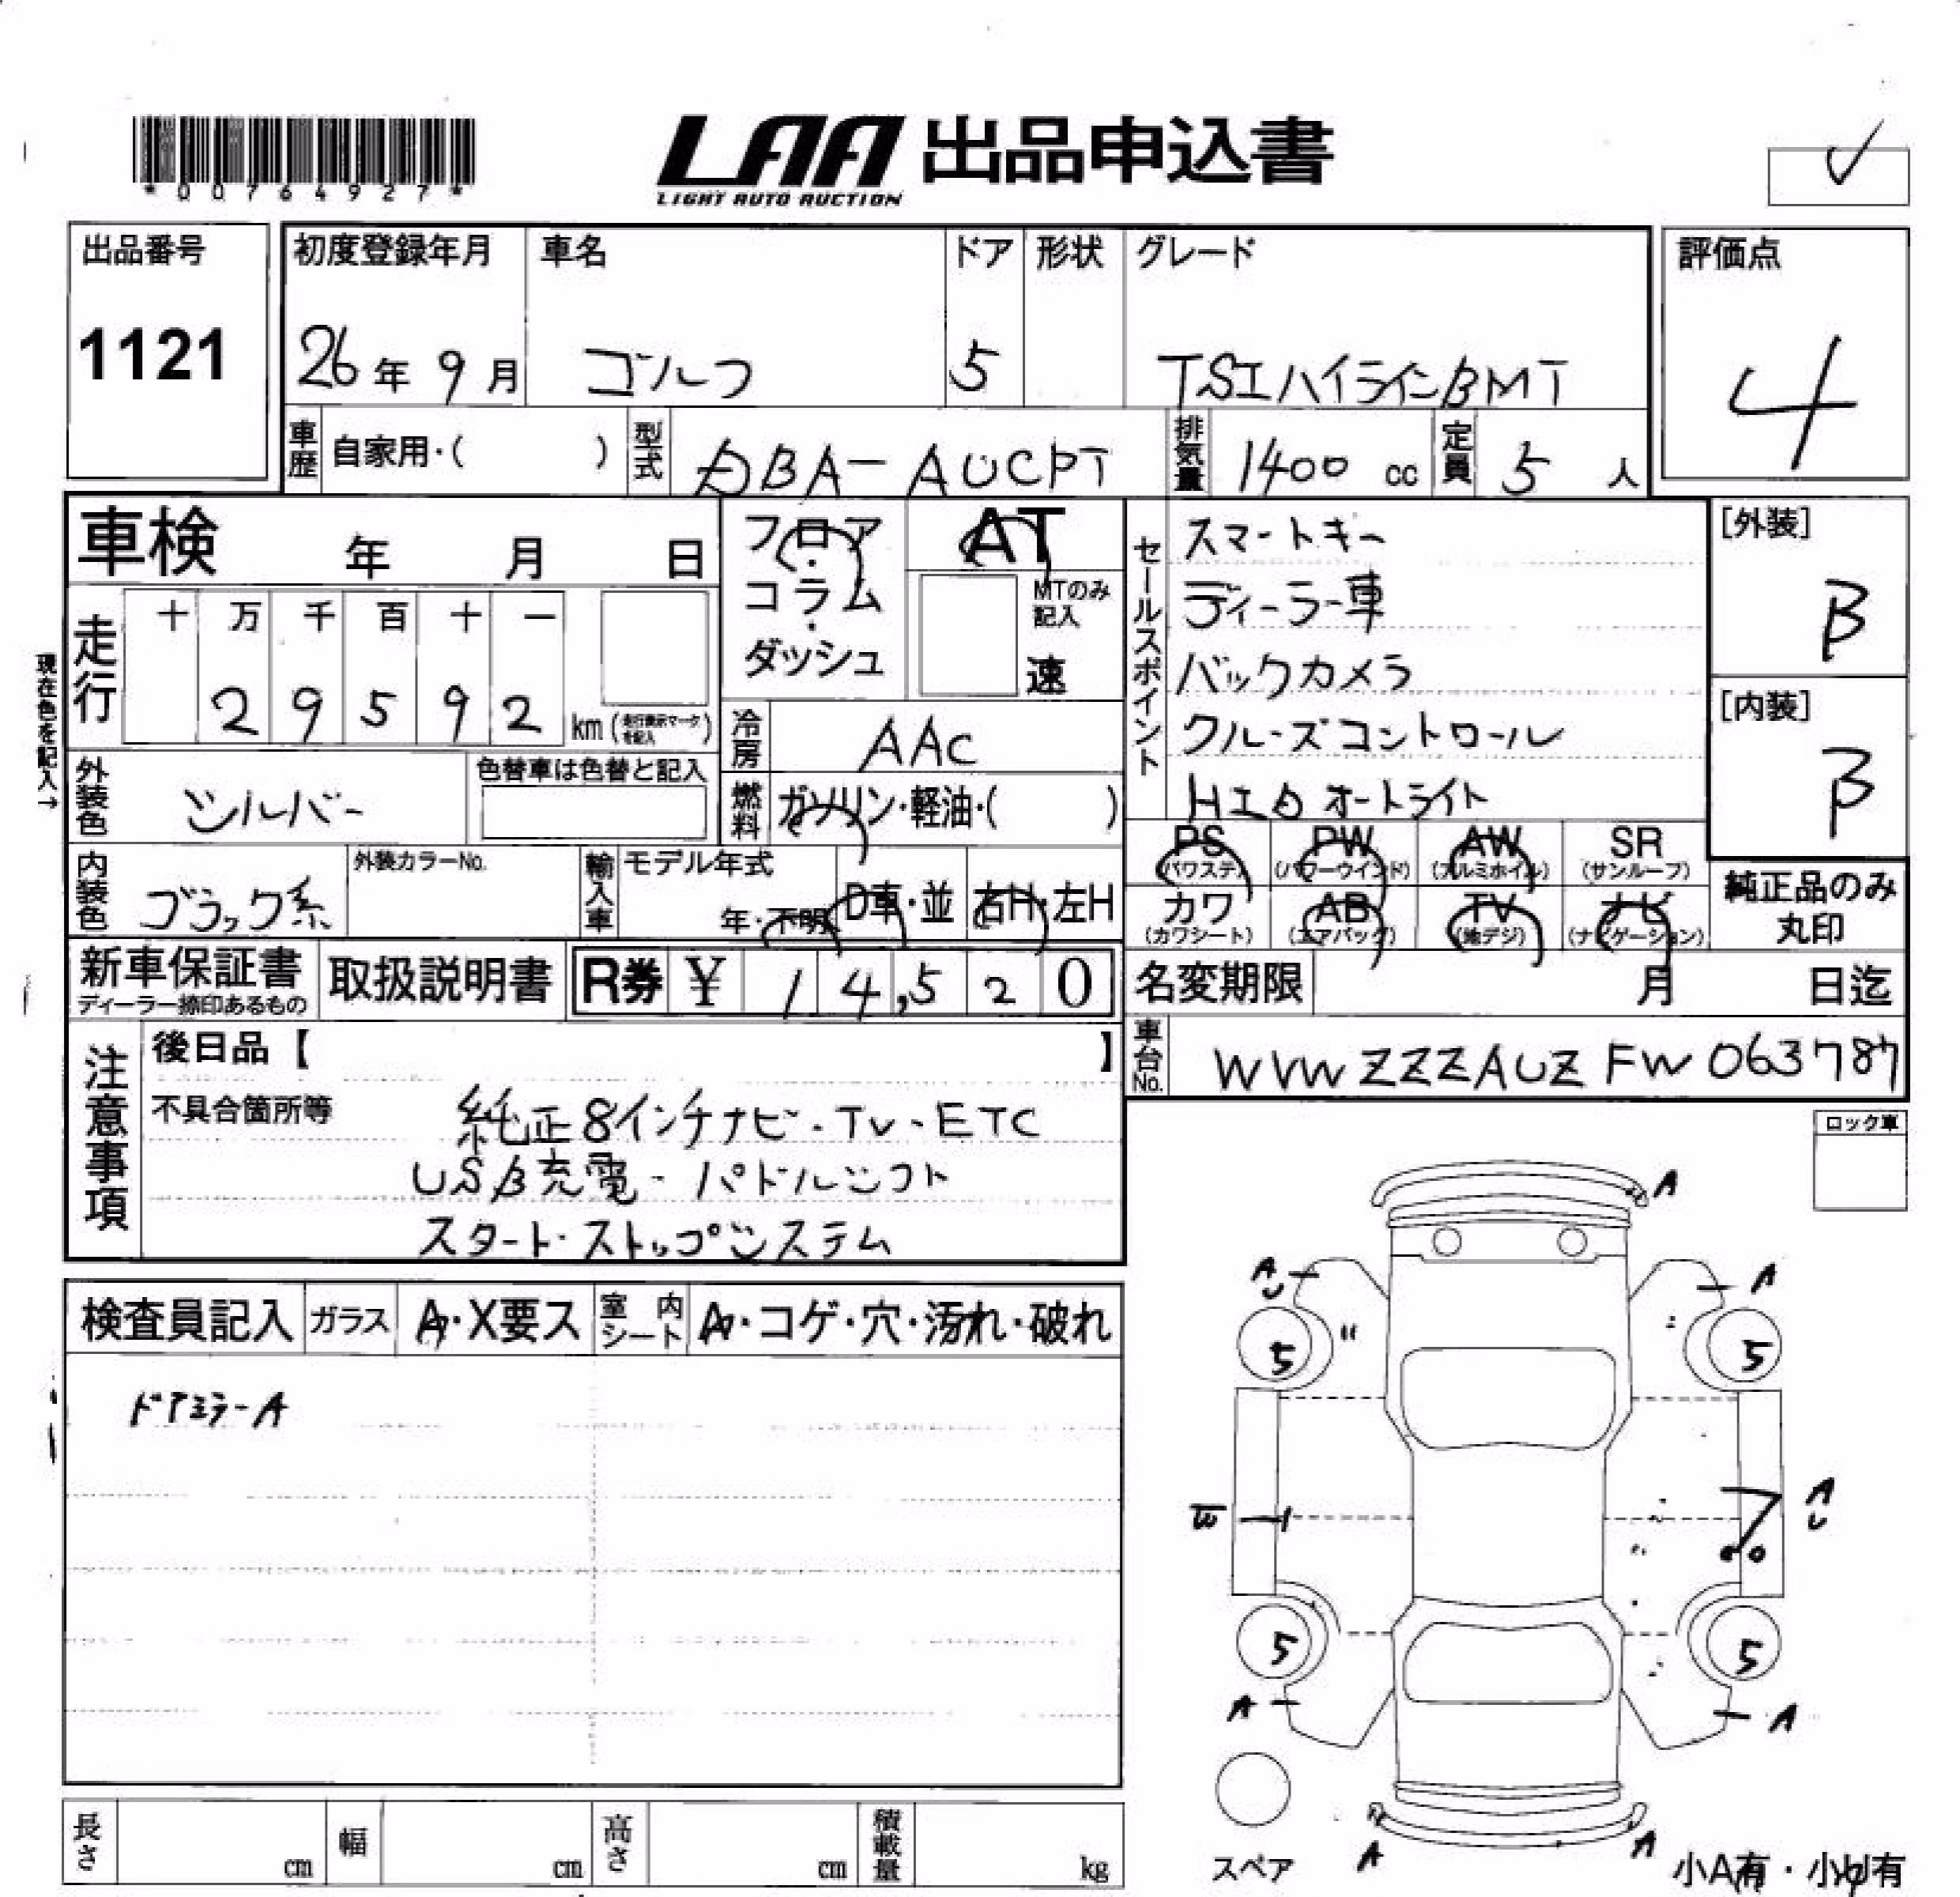 *00764927*
LAA 出品申込書
LIGHT AUTO AUCTION
出品番号
1121
初度登録年月
26年 9月
車名
ゴルフ
ドア
5
形状
グレード
TSIハイラインBMT
評価点
4
車歴 自家用・( )
型式 DBA-AUCPT
排気量 1400 cc
定員 5 人
車検 年 月 日
フロア・コラム・ダッシュ
AT
MTのみ記入
速
セールスポイント
スマートキー
ディーラー車
バックカメラ
クルーズコントロール
HID オートライト
[外装]
B
[内装]
B
現在色を記入→
走行
十 万 千 百 十 一
2 9 5 9 2
km (走行表示マークを記入)
冷房 AAC
外装色 シルバー
色替車は色替と記入
燃料 ガソリン・軽油・( )
PS (パワステ)
PW (パワーウインド)
AW (アルミホイル)
SR (サンルーフ)
内装色 ブラック系
外装カラーNo.
輸入車 モデル年式
年・不明
D車・並
右H・左H
カワ (カワシート)
AB (エアバッグ)
TV (地デジ)
ナビ (ナビゲーション)
純正品のみ丸印
新車保証書
ディーラー捺印あるもの
取扱説明書
R券 ¥ 14,520
名変期限 月 日迄
車台No. WVWZZZAUZFW063787
注意事項
後日品【 】
不具合箇所等
純正8インチナビ・TV・ETC
USB充電・パドルシフト
スタート・ストップシステム
ロック車
検査員記入
ガラス A・X要ス
室内シート A・コゲ・穴・汚れ・破れ
ドアミラーA
A
A
U
A
5
5
W
A
U
5
5
A
A
A
A
スペア
小A有・小U有
長さ cm
幅 cm
高さ cm
積載量 kg